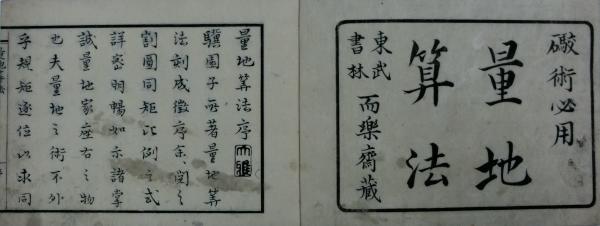 礮術必用
量地
算法
東武
書林
而樂齋藏
量地筭法序
驥園子所著量地筭
法刻成徵序余〻閱之
割圓同矩比例之式
詳密明暢如示諸掌
誠量地家座右之物
也夫量地之術不外
乎規矩逐位以求同